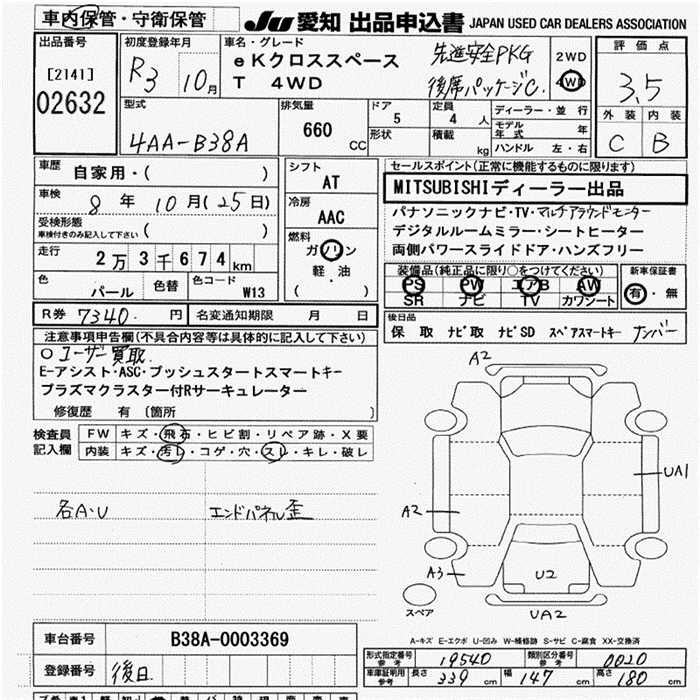 車内保管・守衛保管
JU 愛知 出品申込書 JAPAN USED CAR DEALERS ASSOCIATION
出品番号
[2141]
02632
初度登録年月
R3 10月
車名・グレード
eKクロススペース
T 4WD
先進安全PKG
後席パッケージC.
2WD
4WD
評価点
3.5
外装 内装
C B
型式
4AA-B38A
排気量
660
CC
ドア
5
定員
4 人
形状
積載
kg
ディーラー・並行
モデル年式 年
ハンドル 左・右
車歴
自家用・( )
車検
8 年 10 月 (25日)
受検形態
車検付きのみ記入して下さい ( )
走行
2万3千674km
色
パール
色替
色コード
W13
シフト
AT
冷房
AAC
燃料
ガソリン
軽・油
( )
セールスポイント(正常に機能するものに限ります)
MITSUBISHIディーラー出品
パナソニックナビ・TV・マルチアラウンドモニター
デジタルルームミラー・シートヒーター
両側パワースライドドア・ハンズフリー
装備品(純正品に限り○をつけてください)
PS PW エアB AW
SR ナビ TV カワシート
新車保証書
有・無
R券 7340. 円
名変通知期限 月 日
後日品
保 取 ナビ取 ナビSD スペアスマートキー ナンバー
注意事項申告欄(不具合内容等は具体的に記入して下さい)
○ユーザー買取.
E-アシスト・ASC・プッシュスタートスマートキー
プラズマクラスター付Rサーキュレーター
修復歴 有 〔箇所 〕
検査員
記入欄
FW キズ・飛石・ヒビ割・リペア跡・X要
内装 キズ・汚レ・コゲ・穴・スレ・キレ・破レ
各A・U
エンドパネル歪
A2
UA1
A2
A3
U2
UA2
スペア
A-キズ E-エクボ U-凹み W-補修跡 S-サビ C-腐食 XX-交換済
車台番号
B38A-0003369
登録番号
後日
形式指定番号
参考
19540
類別区分番号
参考
0020
車庫証明用
参考
長さ 339 cm 幅 147 cm 高さ 180 cm